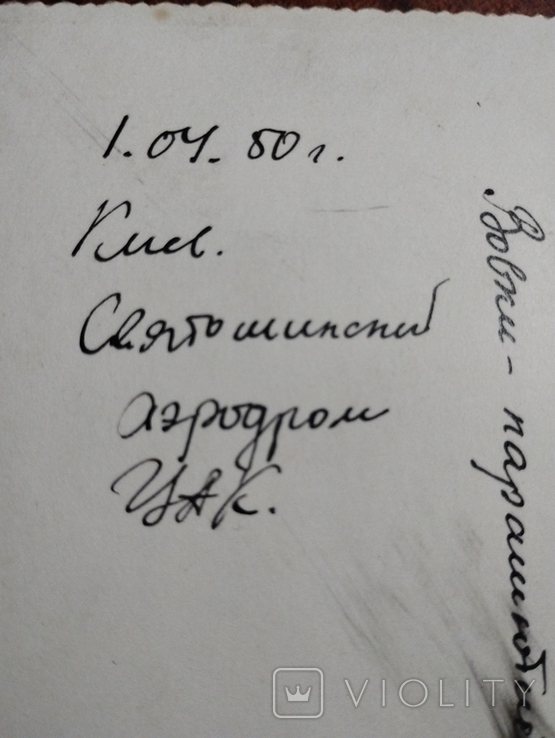 1.04.50г.
Киев.
Святошинский
аэродром
ЦАК.
Вовки - парашюты
VIOLITY